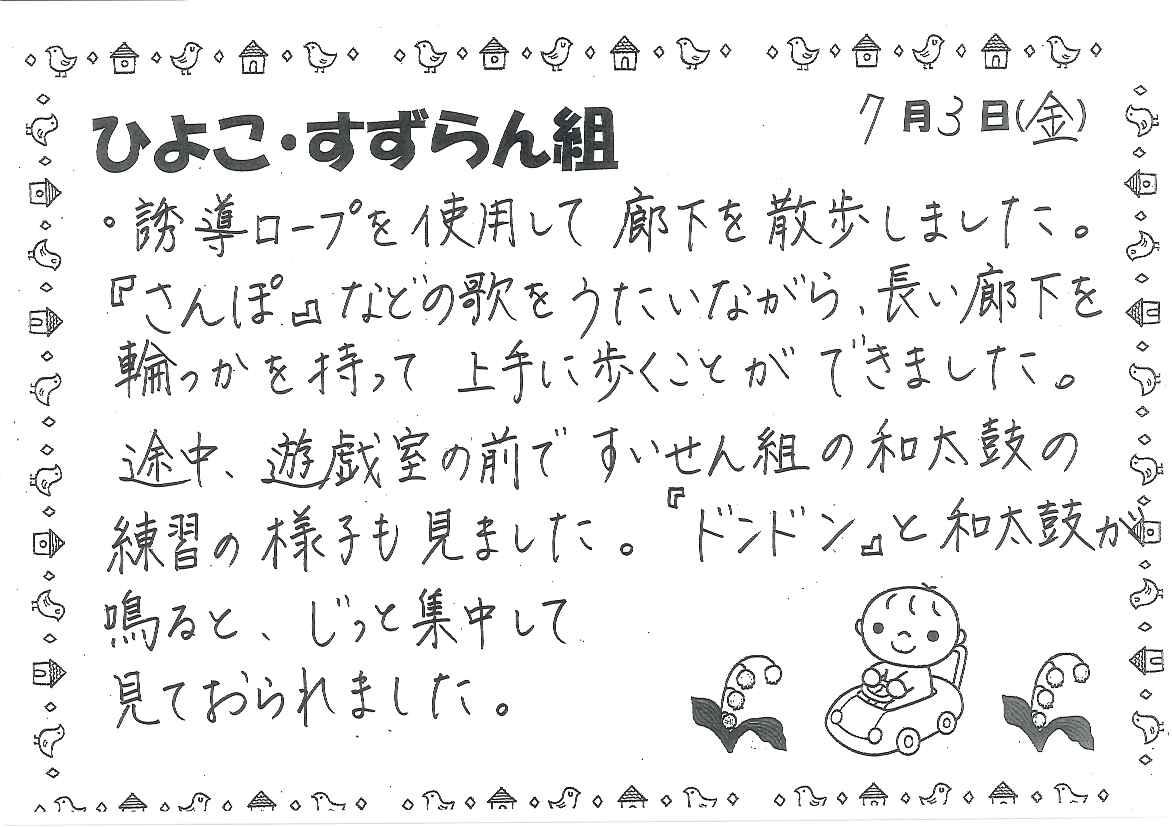 ひよこ・すずらん組
7月3日(金)
・誘導ロープを使用して廊下を散歩しました。
『さんぽ』などの歌をうたいながら、長い廊下を
輪っかを持って上手に歩くことができました。
途中、遊戯室の前ですいせん組の和太鼓の
練習の様子も見ました。『ドンドン』と和太鼓が
鳴ると、じっと集中して
見ておられました。